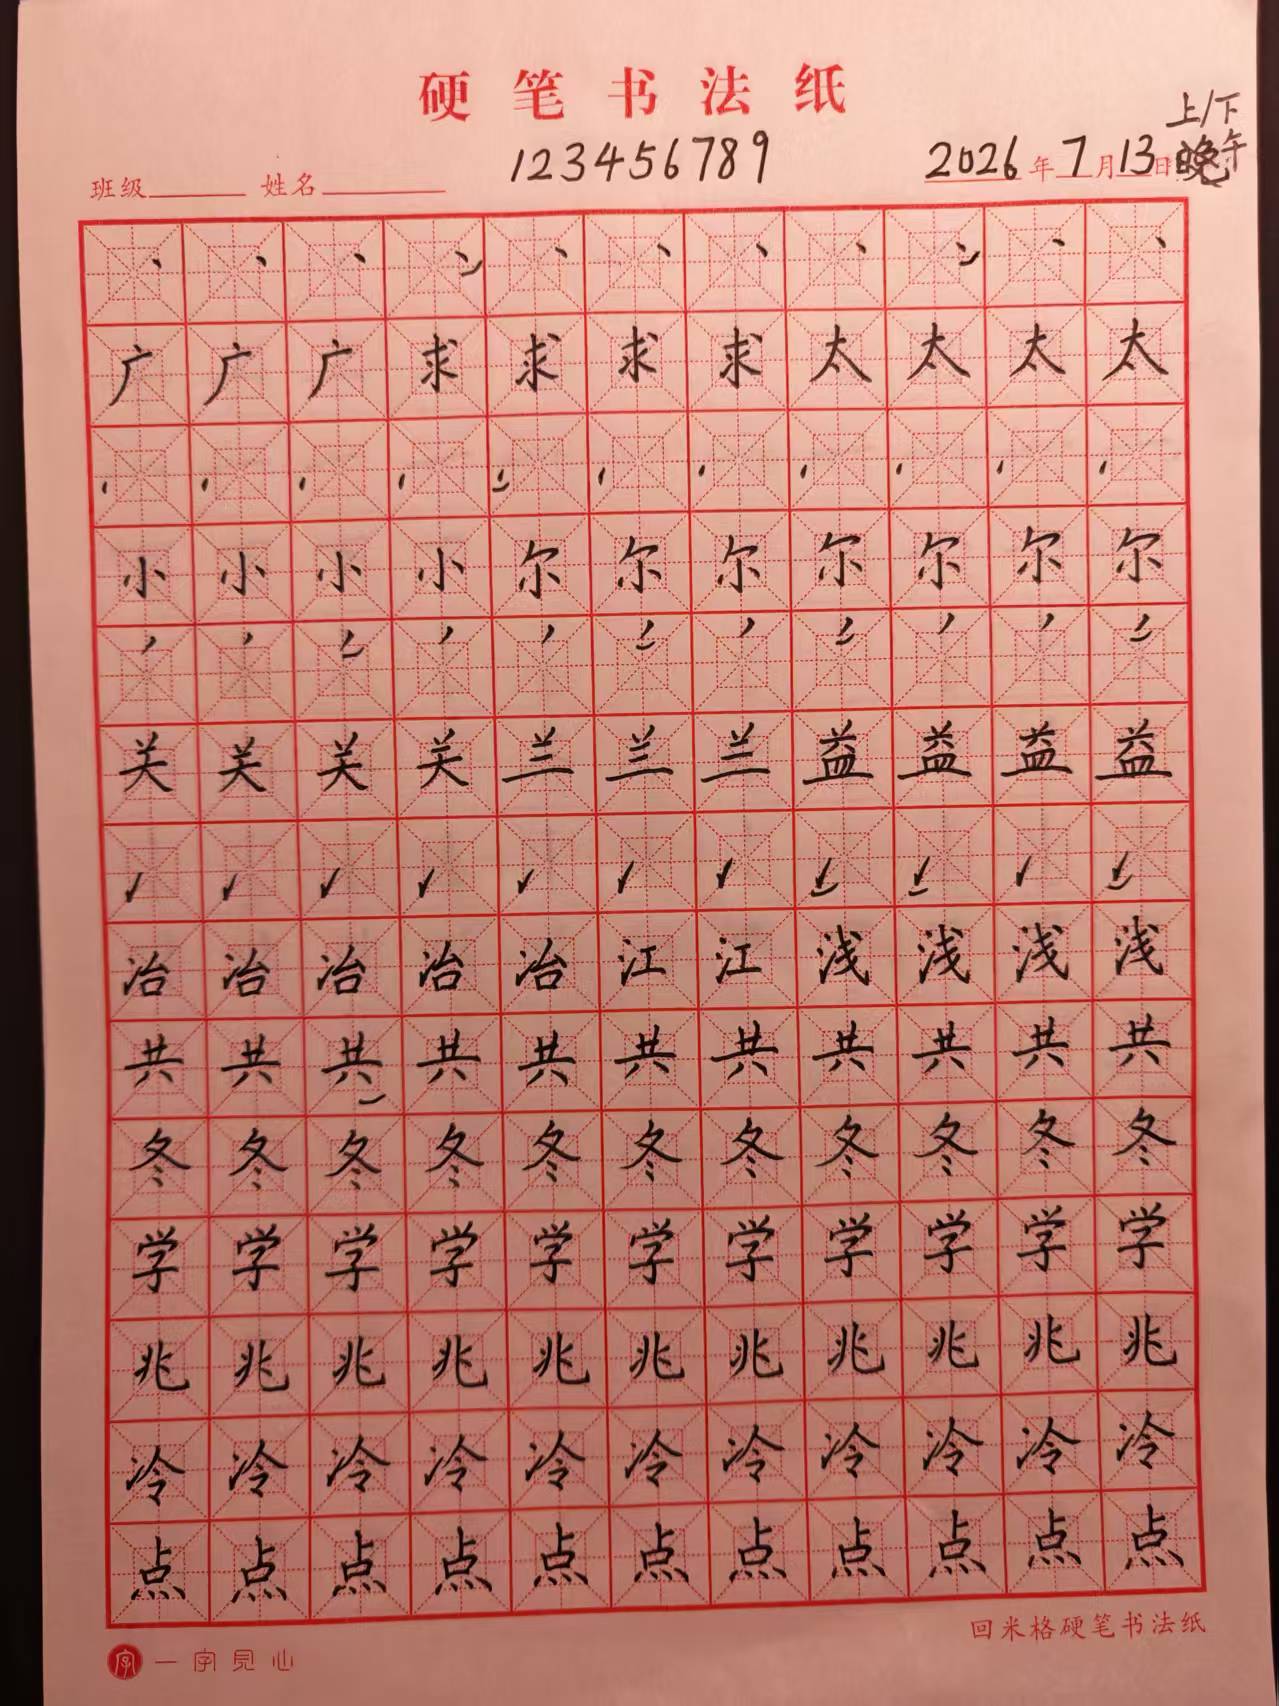 硬笔书法纸
上/下
123456789
班级 姓名 2026年7月13日晚午
丶丶丶丶丶丶丶丶丶丶丶
广广广求求求求太太太太
小小小小尔尔尔尔尔尔尔
关关关关兰兰兰益益益益
冶冶冶冶冶江江浅浅浅浅
共共共共共共共共共共共
冬冬冬冬冬冬冬冬冬冬冬
学学学学学学学学学学学
兆兆兆兆兆兆兆兆兆兆兆
冷冷冷冷冷冷冷冷冷冷冷
点点点点点点点点点点点
回米格硬笔书法纸
字 一字見心